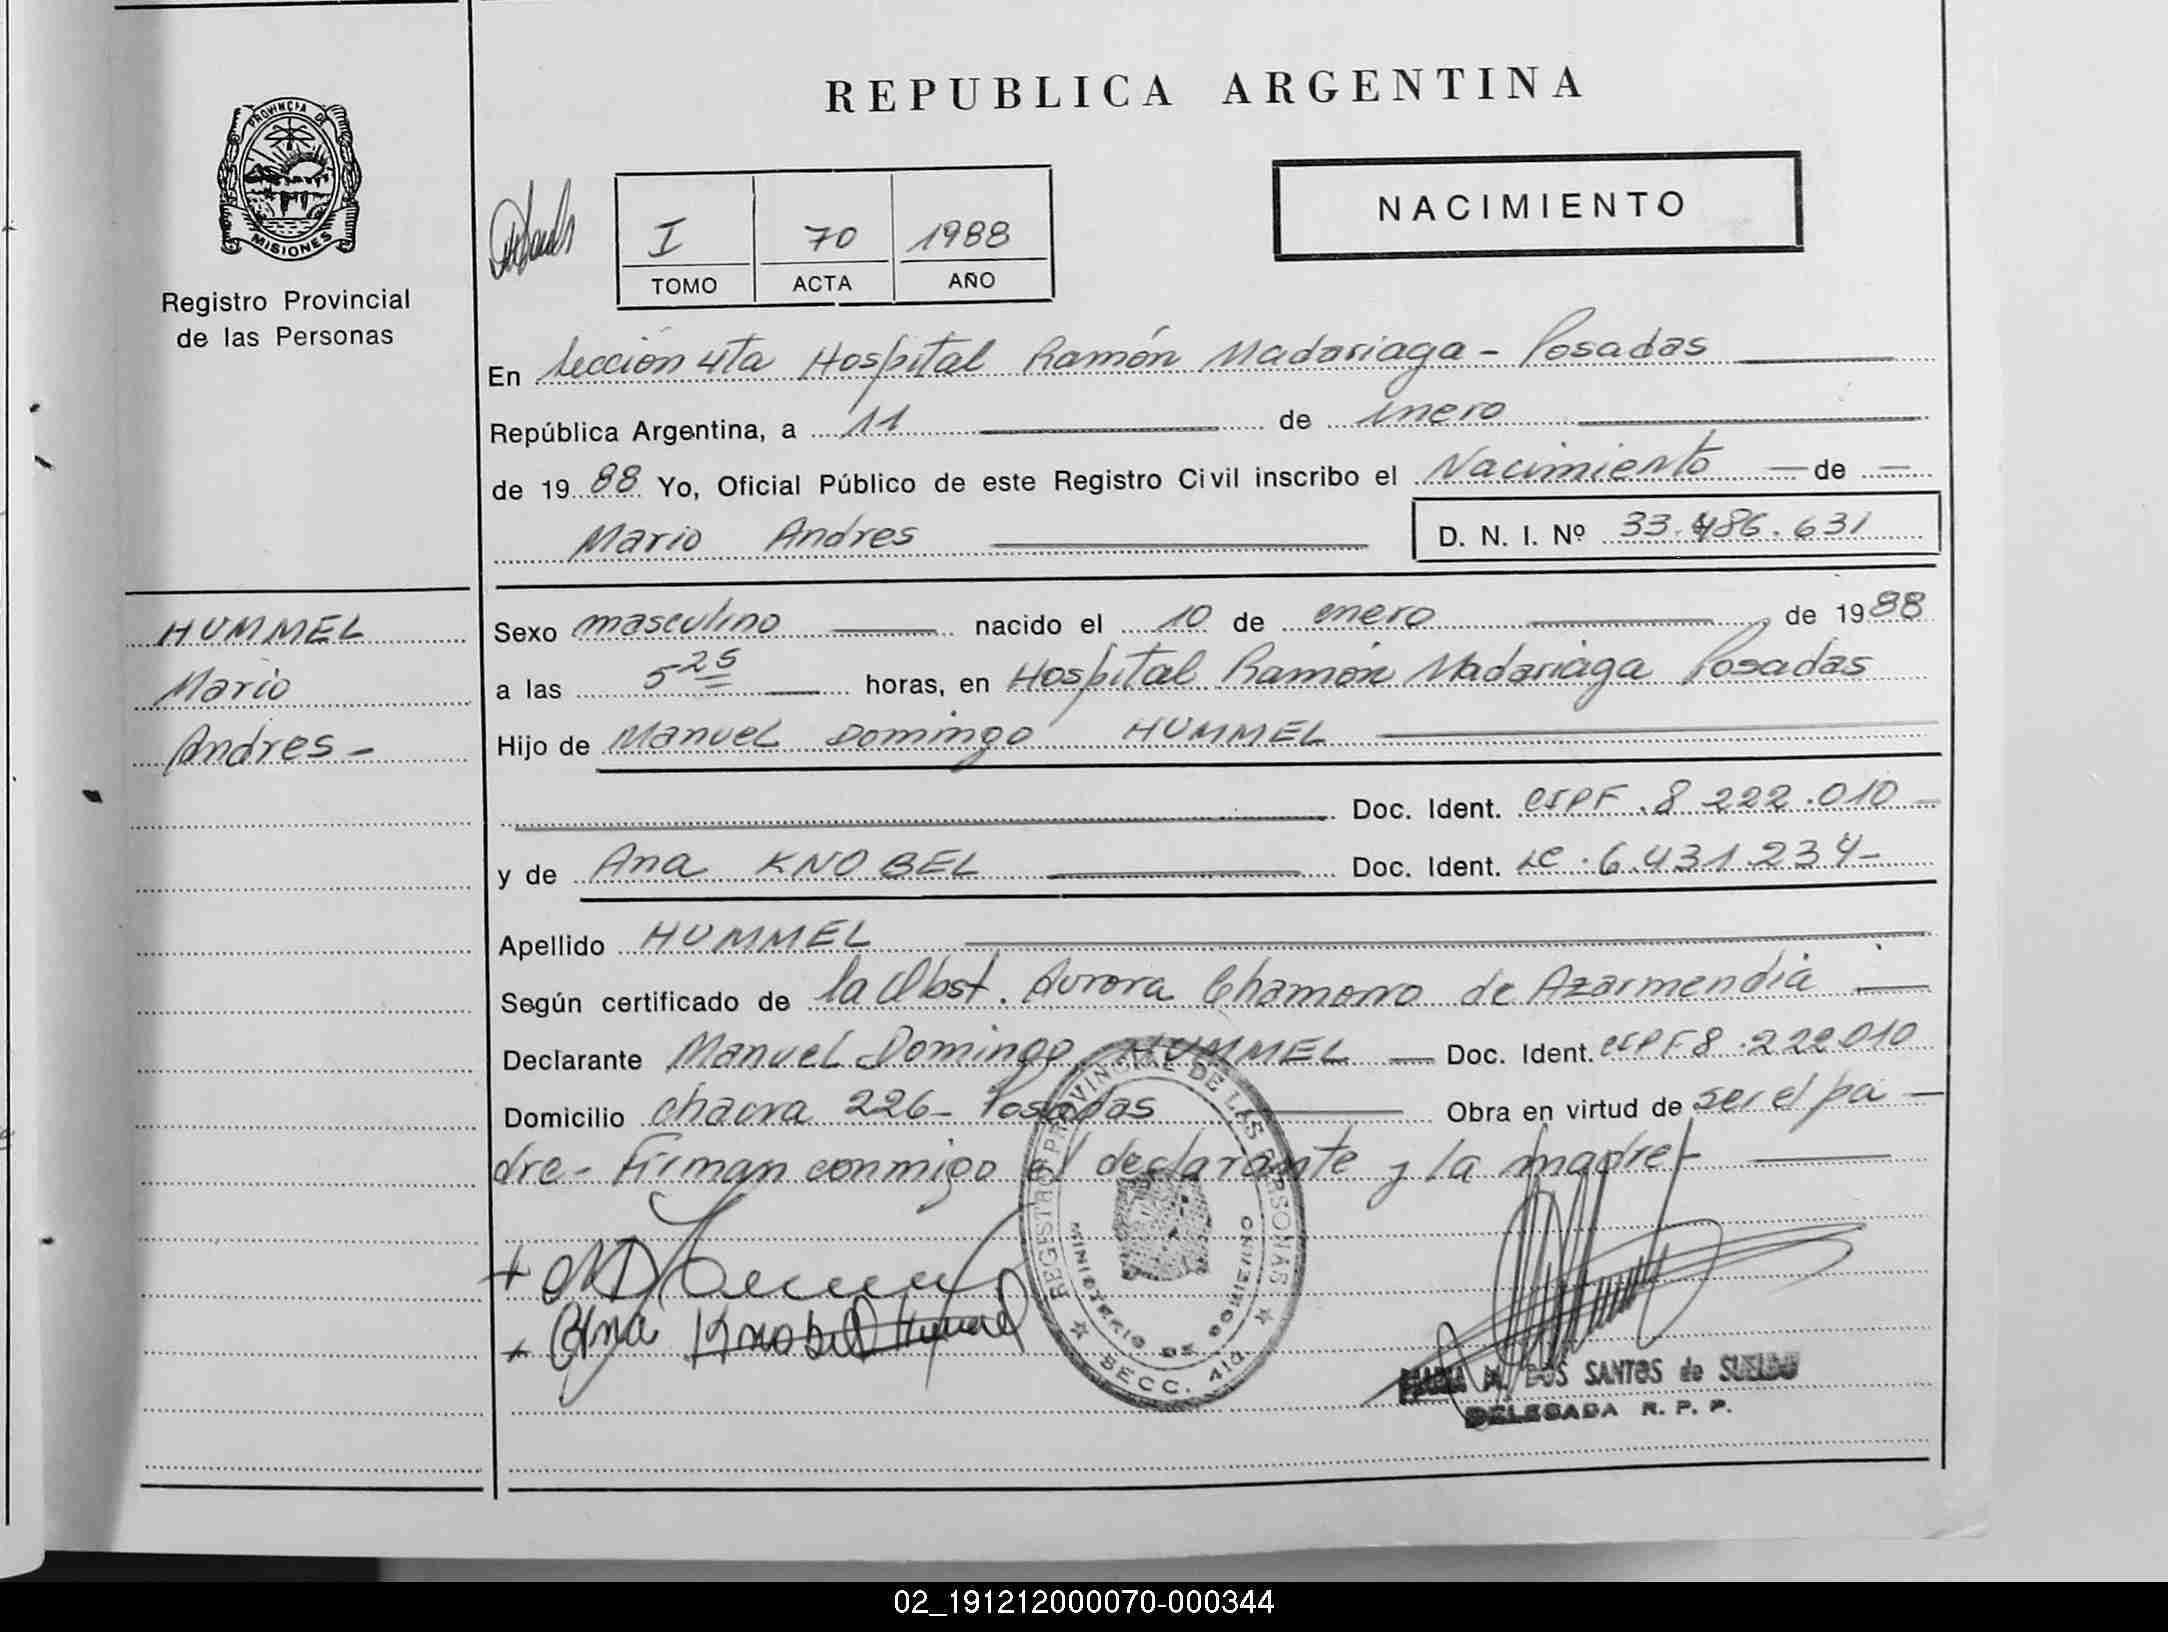 REPUBLICA ARGENTINA
PROVINCIA DE
MISIONES
Registro Provincial
de las Personas
NACIMIENTO
I 70 1988
TOMO ACTA AÑO
En Sección 4ta Hospital Ramón Madariaga - Posadas
República Argentina, a 11 de enero
de 1988 Yo, Oficial Público de este Registro Civil inscribo el Nacimiento — de —
Mario Andres
D. N. I. Nº 33.486.631
HUMMEL
Mario
Andres -
Sexo masculino nacido el 10 de enero de 1988
a las 5 25 horas, en Hospital Ramón Madariaga Posadas
Hijo de Manuel Domingo HUMMEL
Doc. Ident. CIPF. 8 222.010 -
y de Ana KNOBEL Doc. Ident. LC. 6.431.234-
Apellido HUMMEL
Según certificado de la Obst. Aurora Chamorro de Azarmendia
Declarante Manuel Domingo HUMMEL — Doc. Ident. CIPF 8.222010
Domicilio chacra 226- Posadas Obra en virtud de ser el pa -
dre- Firman conmigo el declarante y la madre-
Ana Knobel
REGISTRO PROVINCIAL DE LAS PERSONAS
MINISTERIO DE GOBIERNO
SECC. 4ta.
MARIA M. DOS SANTOS de SUELDO
DELEGADA R. P. P.
02_191212000070-000344